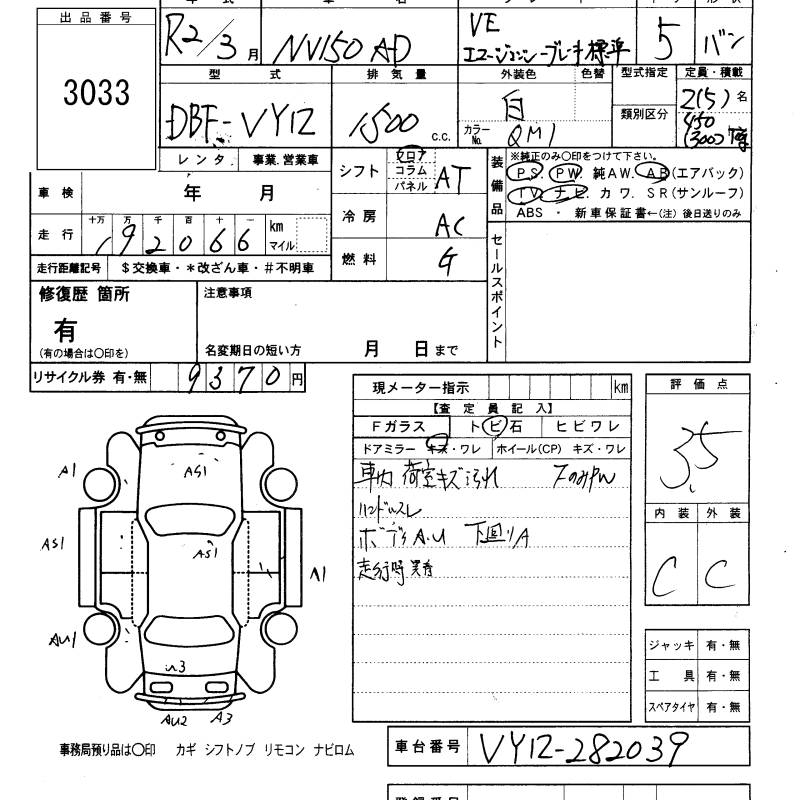 出品番号
3033
R2/3月
NV150 AD
VE
エマージェンシーブレーキ標準
5
バン
型式 排気量 外装色 色替 型式指定 定員・積載
DBF-VY12
1500 C.C.
白
カラーNo. QM1
類別区分
2(5)名
450
(300)
レンタ 事業.営業車
シフト フロア コラム パネル AT
装備品
※純正のみ〇印をつけて下さい。
PS. PW. 純AW. AB(エアバック)
TV. ナビ. カワ. SR(サンルーフ)
ABS ・ 新車保証書←(注)後日送りのみ
車検 年 月
冷房 AC
走行 十万 万 千 百 十 一 km マイル
192066
燃料 G
走行距離記号 $交換車・*改ざん車・#不明車
セールスポイント
修復歴 箇所
有
(有の場合は〇印を)
注意事項
名変期日の短い方 月 日まで
リサイクル券 有・無 9370円
現メーター指示 km
【査定員記入】
Fガラス トビ石 ヒビワレ
ドアミラー キズ・ワレ ホイール(CP) キズ・ワレ
車内 荷室キズ汚れ
ハンドルスレ
ボディA.U 下回りA
走行時異音
評価点
3.5
内装 外装
C C
ジャッキ 有・無
工具 有・無
スペアタイヤ 有・無
A1
AS1
AS1
AS1
A1
AU1
U3
AU2
A3
事務局預り品は〇印 カギ シフトノブ リモコン ナビロム
車台番号 VY12-282039